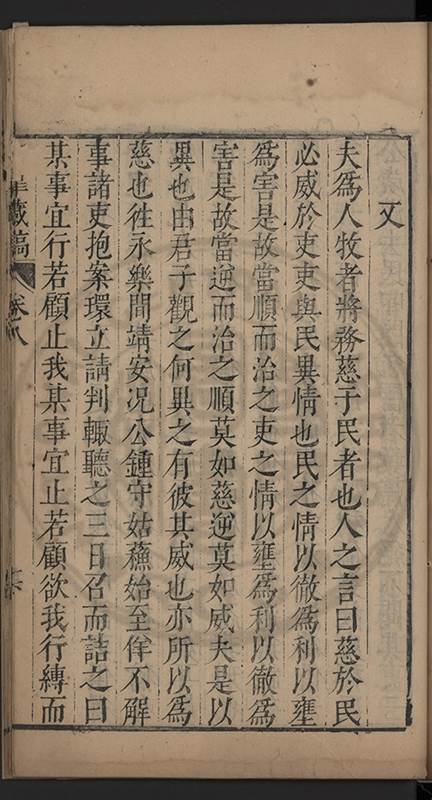 又
夫爲人牧者將務慈于民者也人之言曰慈於民
必威於吏吏與民異情也民之情以徹爲利以壅
爲害是故當順而治之吏之情以壅爲利以徹爲
害是故當逆而治之順莫如慈逆莫如威夫是以
異也由君子觀之何異之有彼其威也亦所以爲
慈也徃永樂間靖安况公鍾守姑蘇始至佯不解
事諸吏抱案環立請判輙聽之三日召而詰之曰
某事宜行若顧止我某事宜止若顧欲我行縛而
藏稿
卷之八